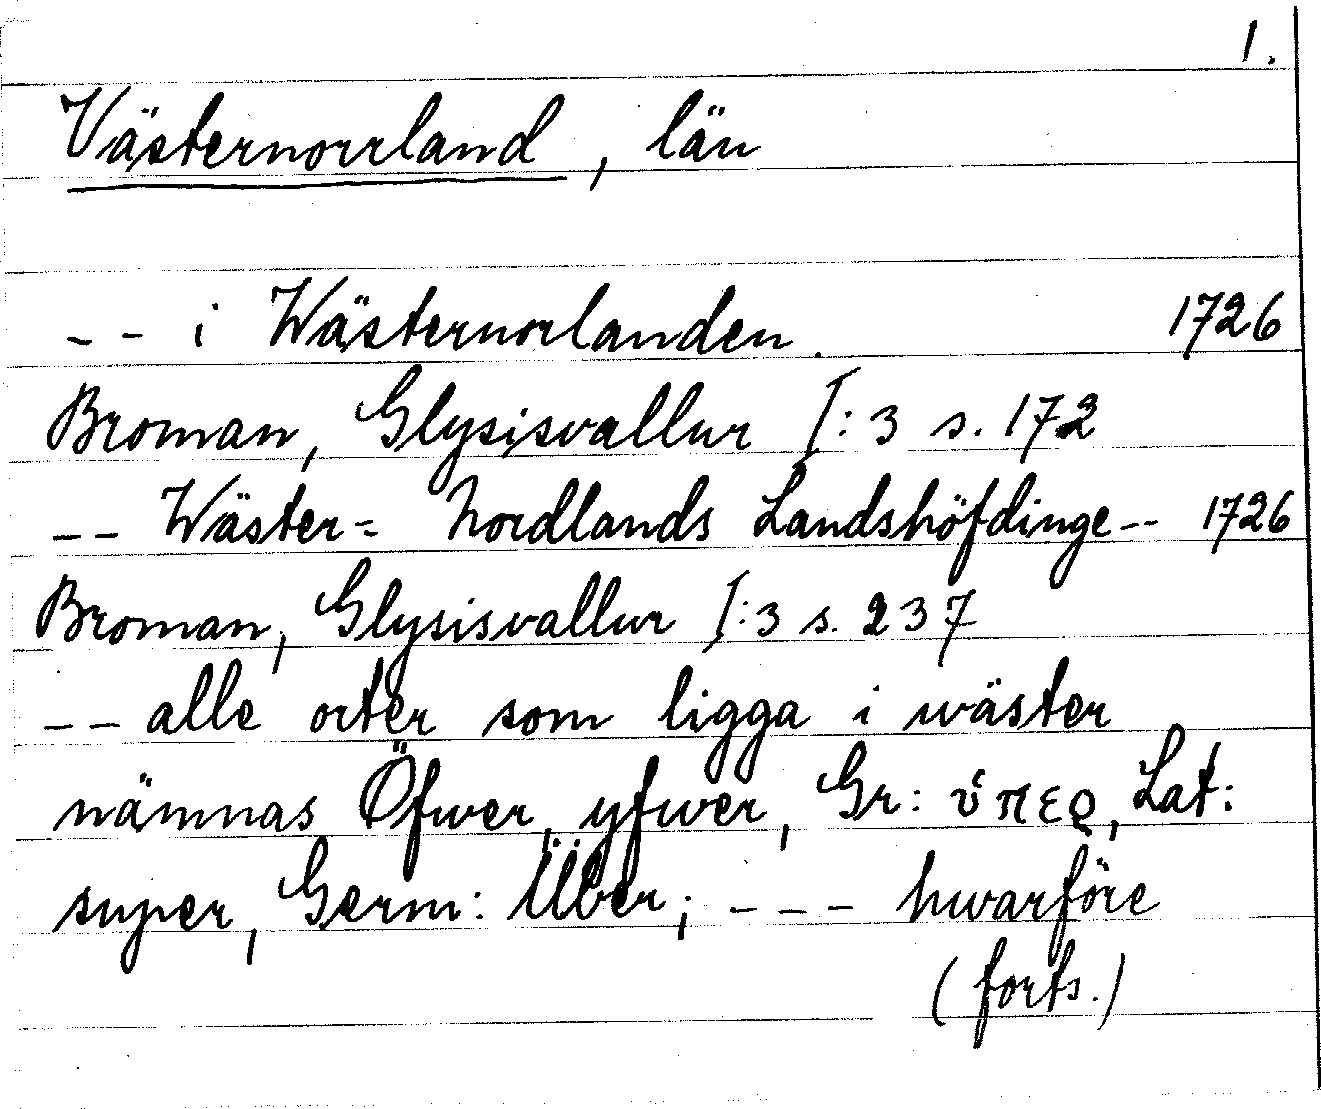 1.
Västernorrland, län
-- i Wästernorlanden. 1726
Broman, Glysisvallur I:3 s. 172
-- Wäster= Nordlands Landshöfdinge-- 1726
Broman, Glysisvallur I:3 s. 237
-- alle orter som ligga i wäster
nämnas Öfwer, yfwer, Gr: ὑπερ, Lat:
super, Germ: Über; --- hwarföre
(forts.)